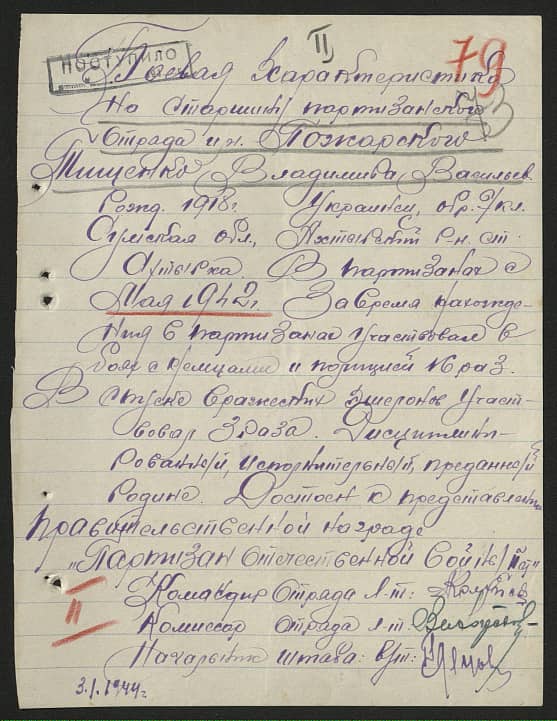 ПОСТУПИЛО
II
79
Боевая Характеристика
на Старшину партизанского
Отряда им. Пожарского
Тищенко Владимира Васильев.
рожд. 1918г. Украинец, обр. 7 кл.
Сумская обл,
В партизанах с
Мая 1942г. За время нахожде-
ния в партизанах участвовал в
боях с немцами и полицией 16 раз.
В спуске вражеских эшелонов участ-
вовал 3 раза. Дисциплини-
рованный, исполнительный, преданный
Родине. Достоен к представлению
правительственной награде
„Партизан Отечественной Войны" II ст"
II
Командир Отряда Л-т:
Комиссар Отряда Л-т
Начальник штаба:
3.1.1944г.